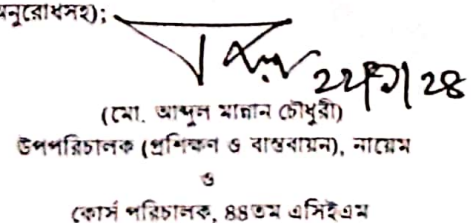 অনুরোধসহ);
২২/৭/২৪
(মো. আব্দুল মান্নান চৌধুরী)
উপপরিচালক (প্রশিক্ষণ ও বাস্তবায়ন), নায়েম
ও
কোর্স পরিচালক, ৪৪তম এসিইএম